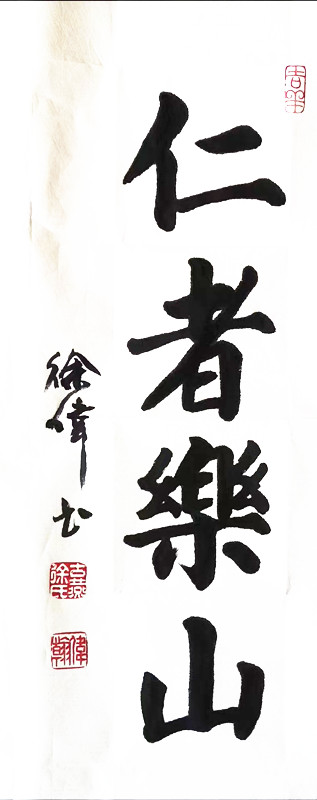 仁者樂山
徐偉书